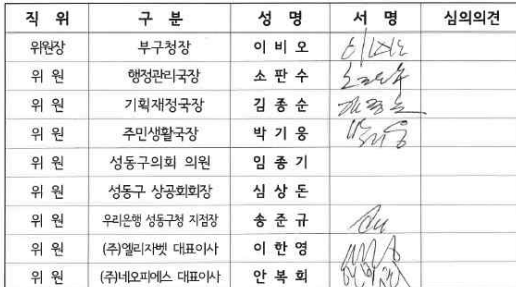 직 위 구 분 성 명 서 명 심의의견
위원장 부구청장 이 비 오 이비오
위 원 행정관리국장 소 판 수
위 원 기획재정국장 김 종 순
위 원 주민생활국장 박 기 웅
위 원 성동구의회 의원 임 종 기
위 원 성동구 상공회회장 심 상 돈
위 원 우리은행 성동구청 지점장 송 준 규
위 원 (주)엘리자벳 대표이사 이 한 영
위 원 (주)네오피에스 대표이사 안 복 희